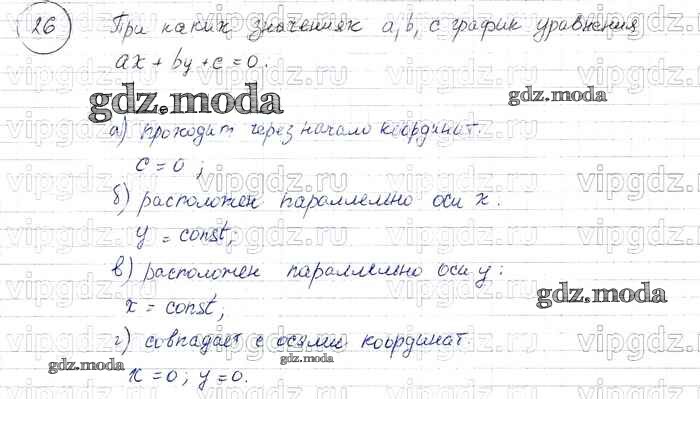 26 При каких значениях a, b, c график уравнения
ax + by + c = 0.
gdz.moda gdz.moda
а) проходит через начало координат.
c = 0 ;
б) расположен параллельно оси x.
y = const;
в) расположен параллельно оси y:
x = const;
gdz.moda
г) совпадает с осями координат.
gdz.moda gdz.moda
x = 0 ; y = 0.
vipgdz.ru vipgdz.ru vipgdz.ru vipgdz.ru